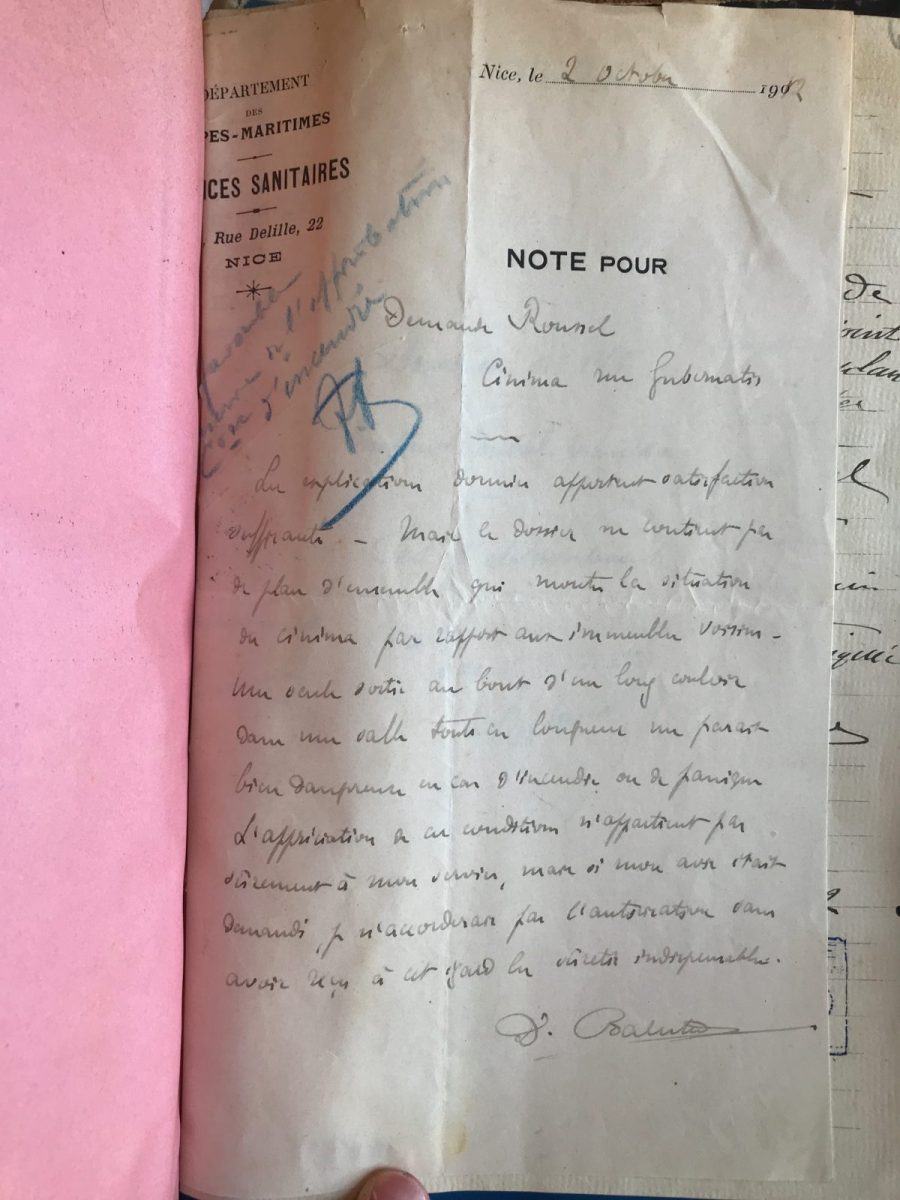 DÉPARTEMENT
DES
PES-MARITIMES
ICES SANITAIRES
Rue Delille, 22
NICE
Nice, le 2 Octobre 1912
NOTE POUR
favorable
à l'approbation
d'incendie
Demande Roussel
Cinéma rue Gubernatis
Les explications données apportent satisfaction
suffisante – Mais le dossier ne contient pas
de plan d'ensemble qui montre la situation
du cinéma par rapport aux immeubles voisins –
Une seule sortie au bout d'un long couloir
dans une salle toute en longueur me parait
bien dangereuse en cas d'incendie ou de panique
L'appréciation de ces conditions n'appartient pas
sûrement à mon service, mais si mon avis était
demandé, je n'accorderais pas l'autorisation sans
avoir reçu à cet égard les sûretés indispensables.
Dr.
de